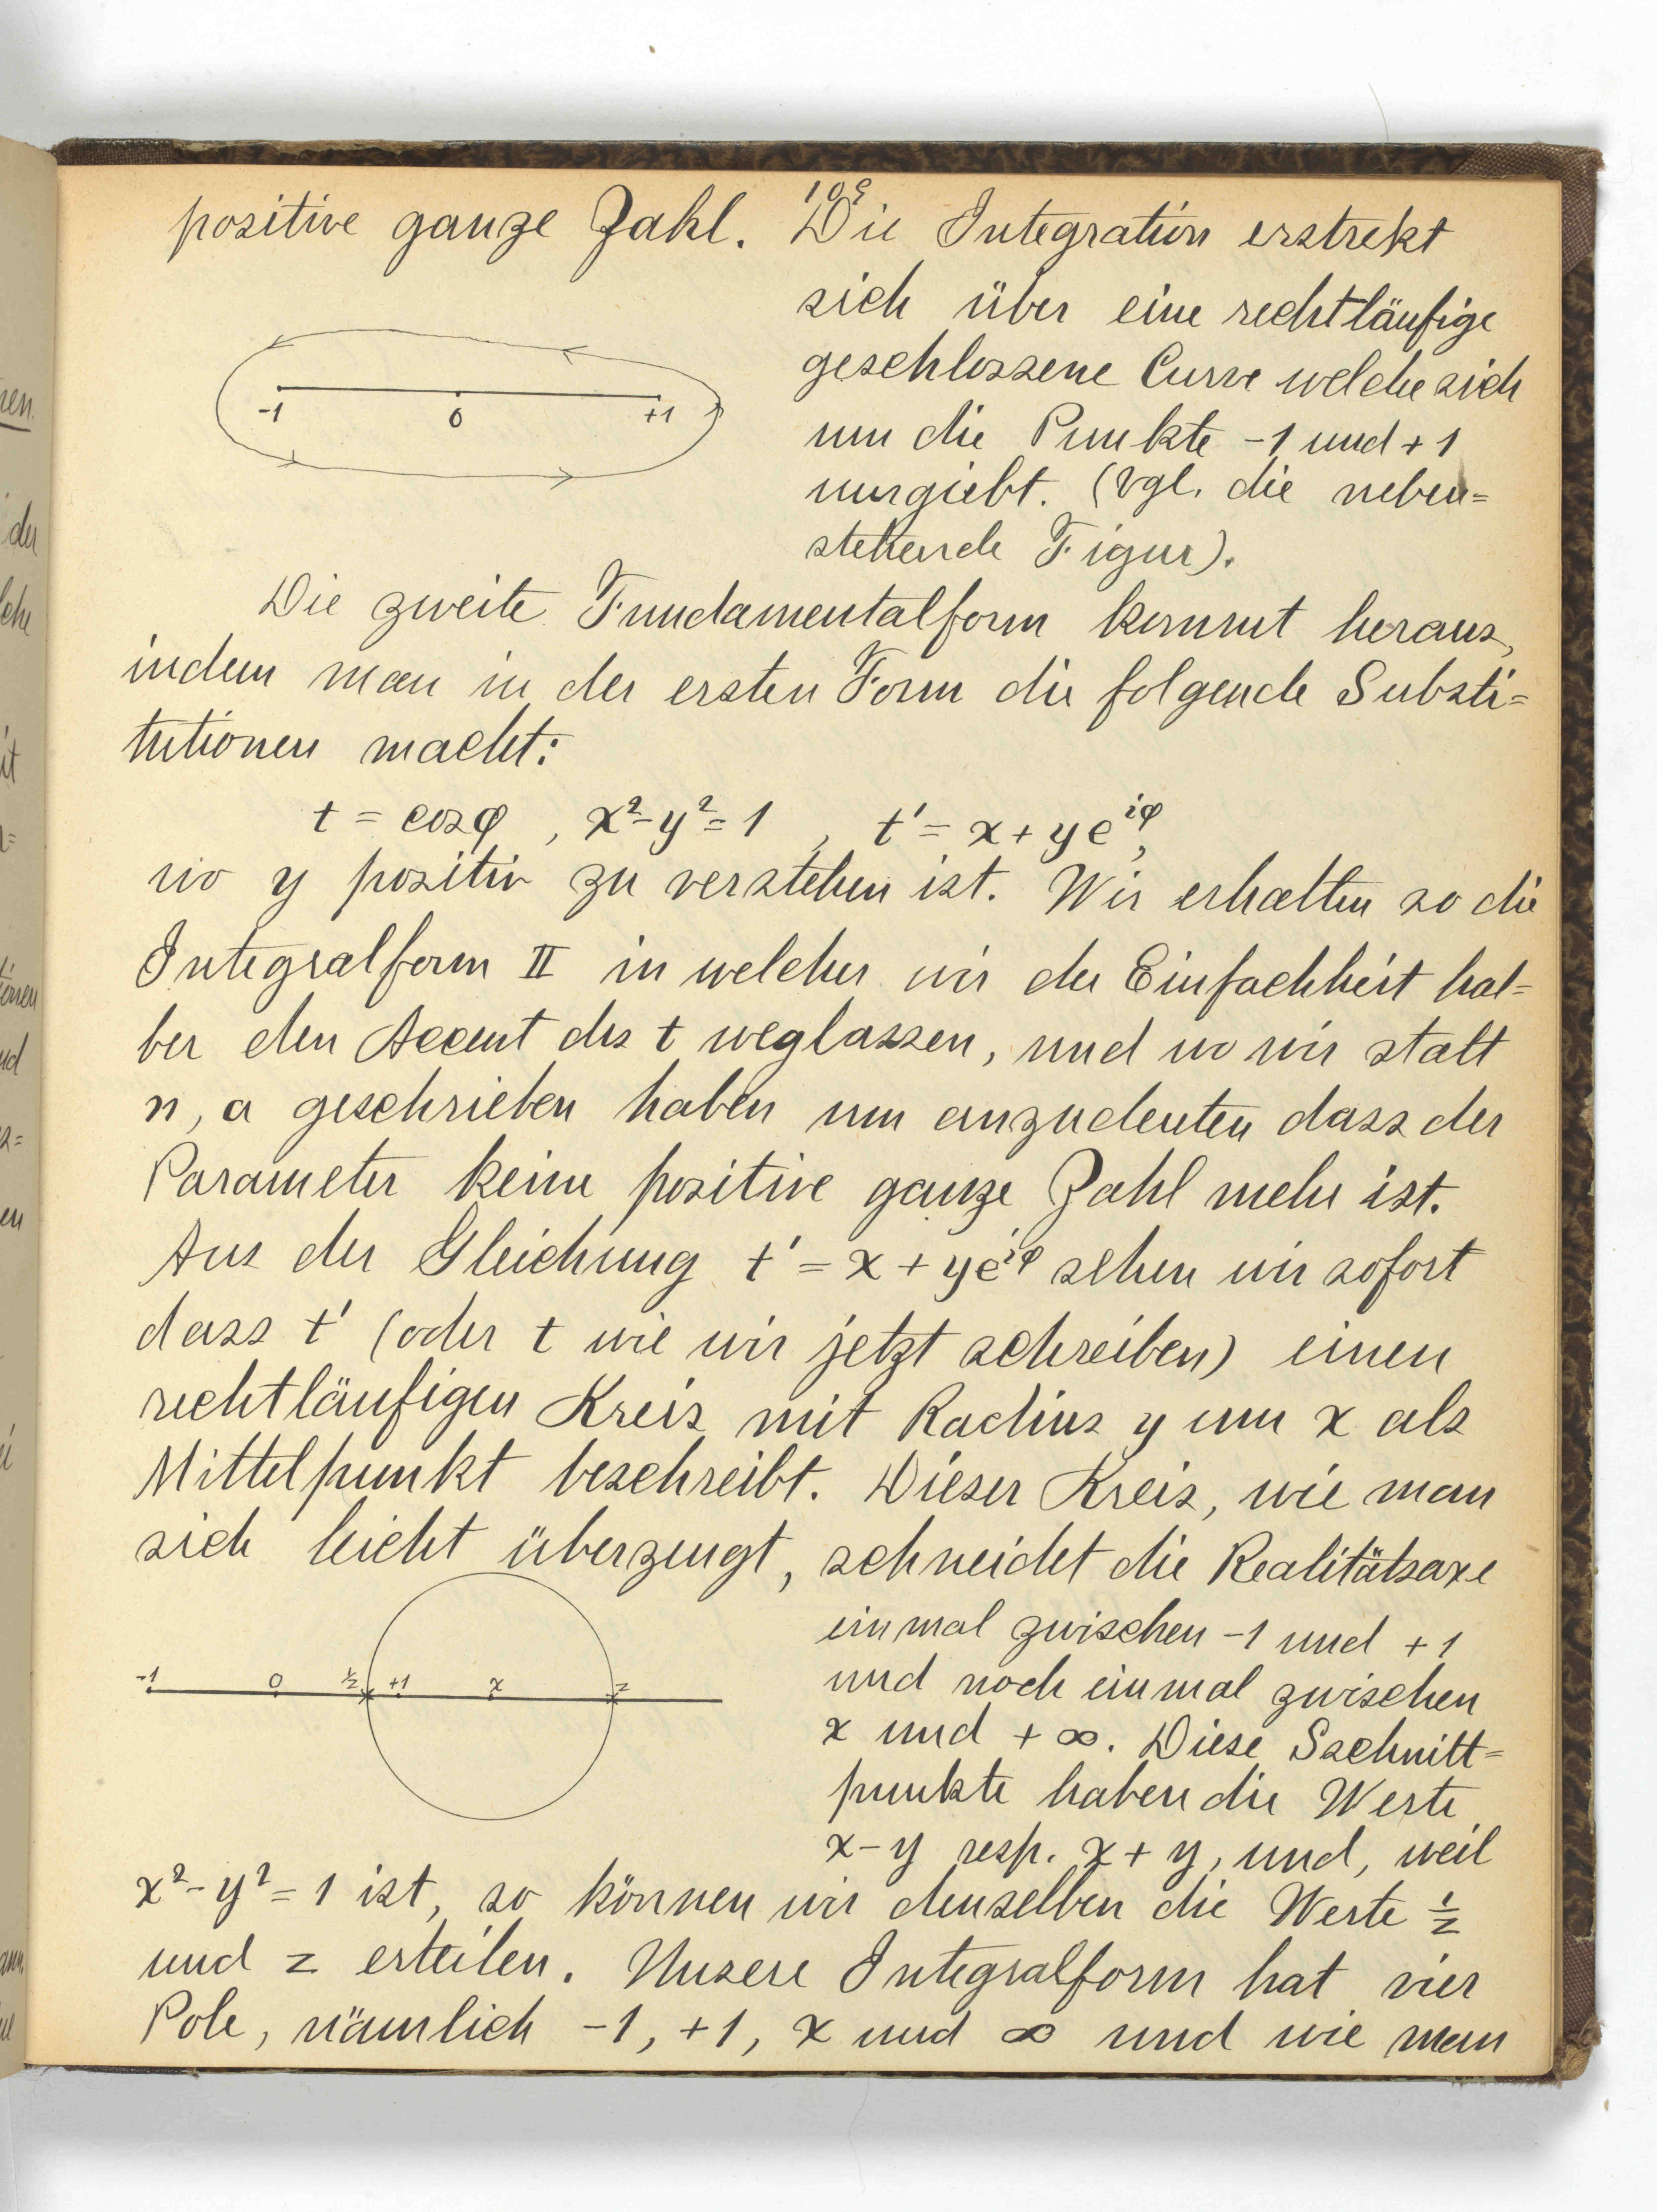 109
positive ganze Zahl. Die Integration erstrekt
sich über eine rechtläufige
geschlossene Curve welche sich
um die Punkte -1 und +1
umgiebt. (vgl. die neben=
stehende Figur).
-1 0 +1
Die zweite Fundamentalform kommt heraus,
indem man in der ersten Form die folgende Substi=
tutionen macht:
t = cosφ , x²-y²=1 , t' = x + ye^{iφ},
wo y positiv zu verstehen ist. Wir erhalten so die
Integralform II in welcher wir der Einfachheit hal=
ber den Accent des t weglassen, und wo wir statt
n, a geschrieben haben um anzudeuten dass der
Parameter keine positive ganze Zahl mehr ist.
Aus der Gleichung t' = x + ye^{iφ} sehen wir sofort
dass t' (oder t wie wir jetzt schreiben) einen
rechtläufigen Kreis mit Radius y um x als
Mittelpunkt beschreibt. Dieser Kreis, wie man
sich leicht überzeugt, schneidet die Realitätsaxe
einmal zwischen -1 und +1
und noch einmal zwischen
x und +∞. Diese Sschnitt=
punkte haben die Werte
x-y resp. x+y, und, weil
-1 0 1/z +1 x z
x²-y²=1 ist, so können wir denselben die Werte 1/z
und z erteilen. Unsere Integralform hat vier
Pole, nämlich -1, +1, x und ∞ und wie man